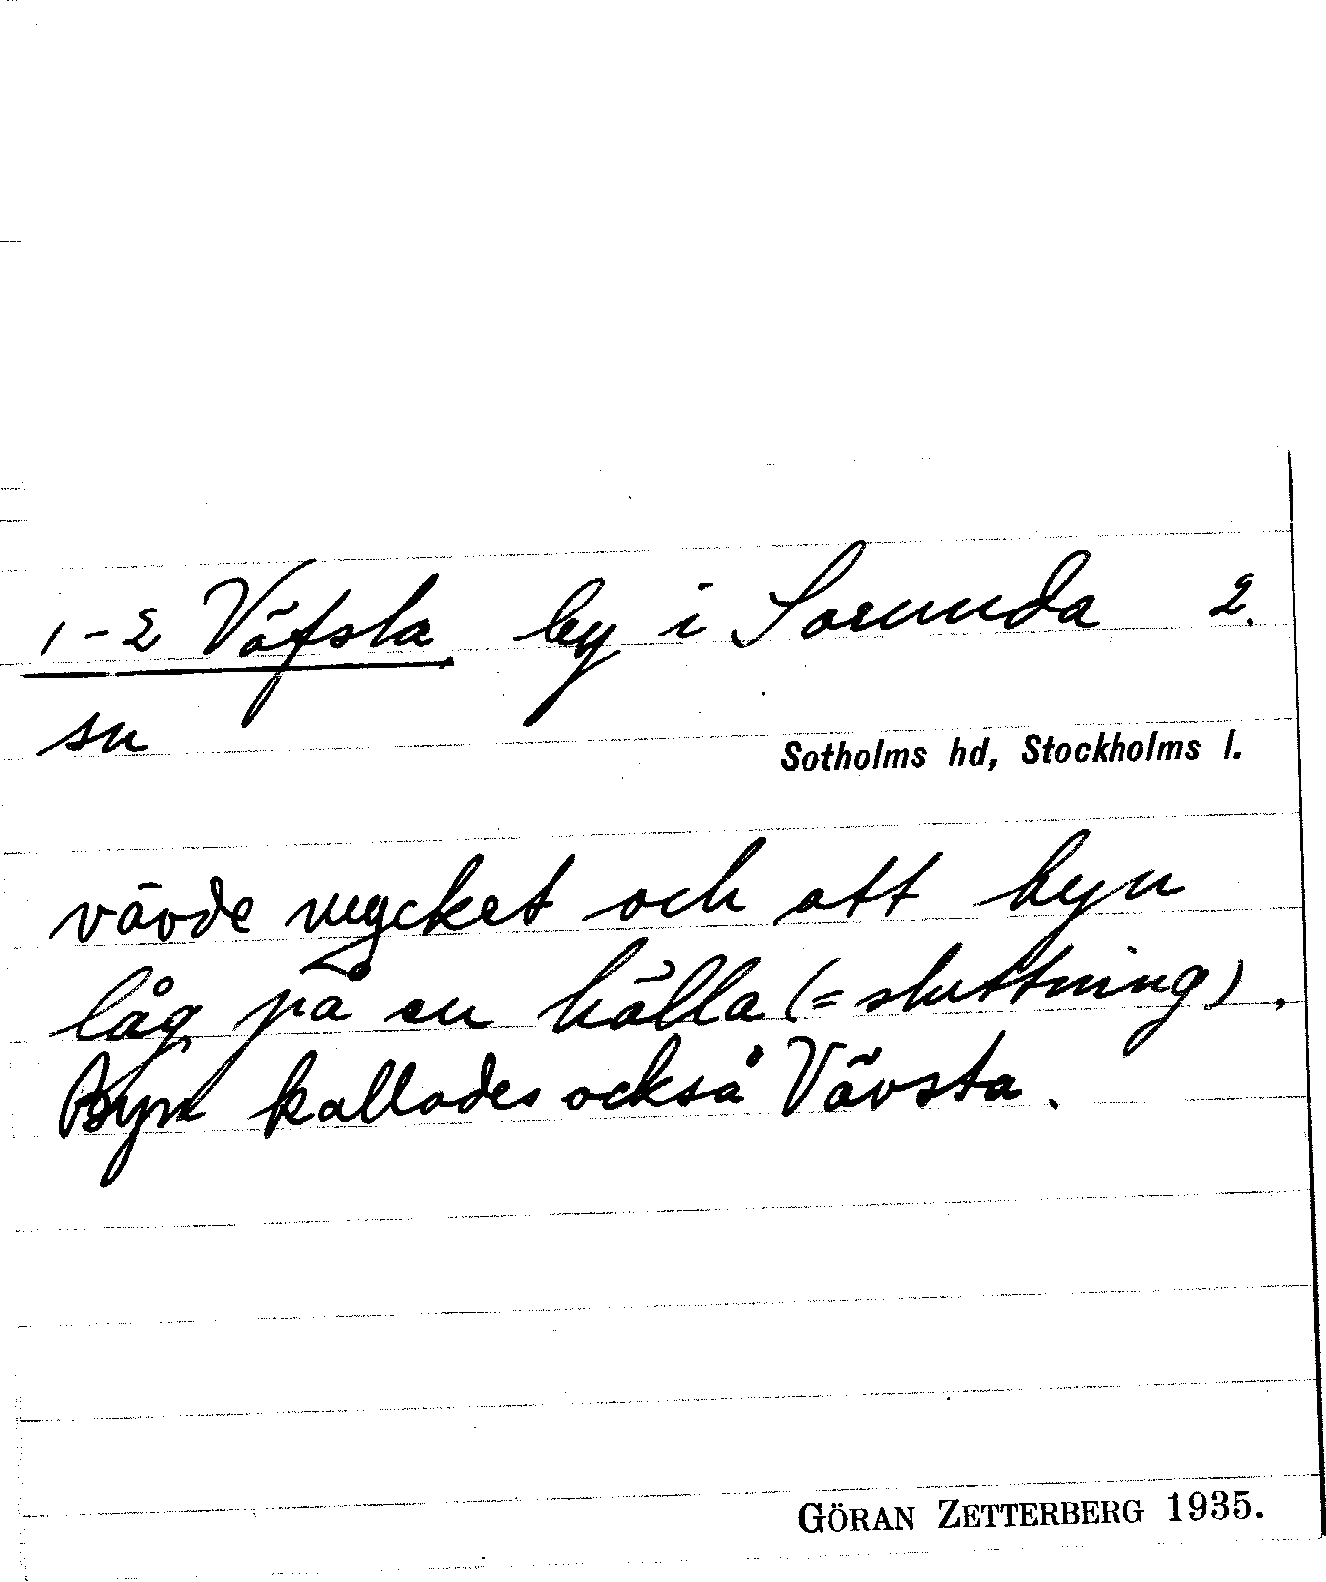 1-2 Väfsta, by i Sorunda 2.
sn
Sotholms hd, Stockholms l.
vävde mycket och att byn
låg på en hälla (= sluttning).
Byn kallades också Vävsta.
GÖRAN ZETTERBERG 1935.